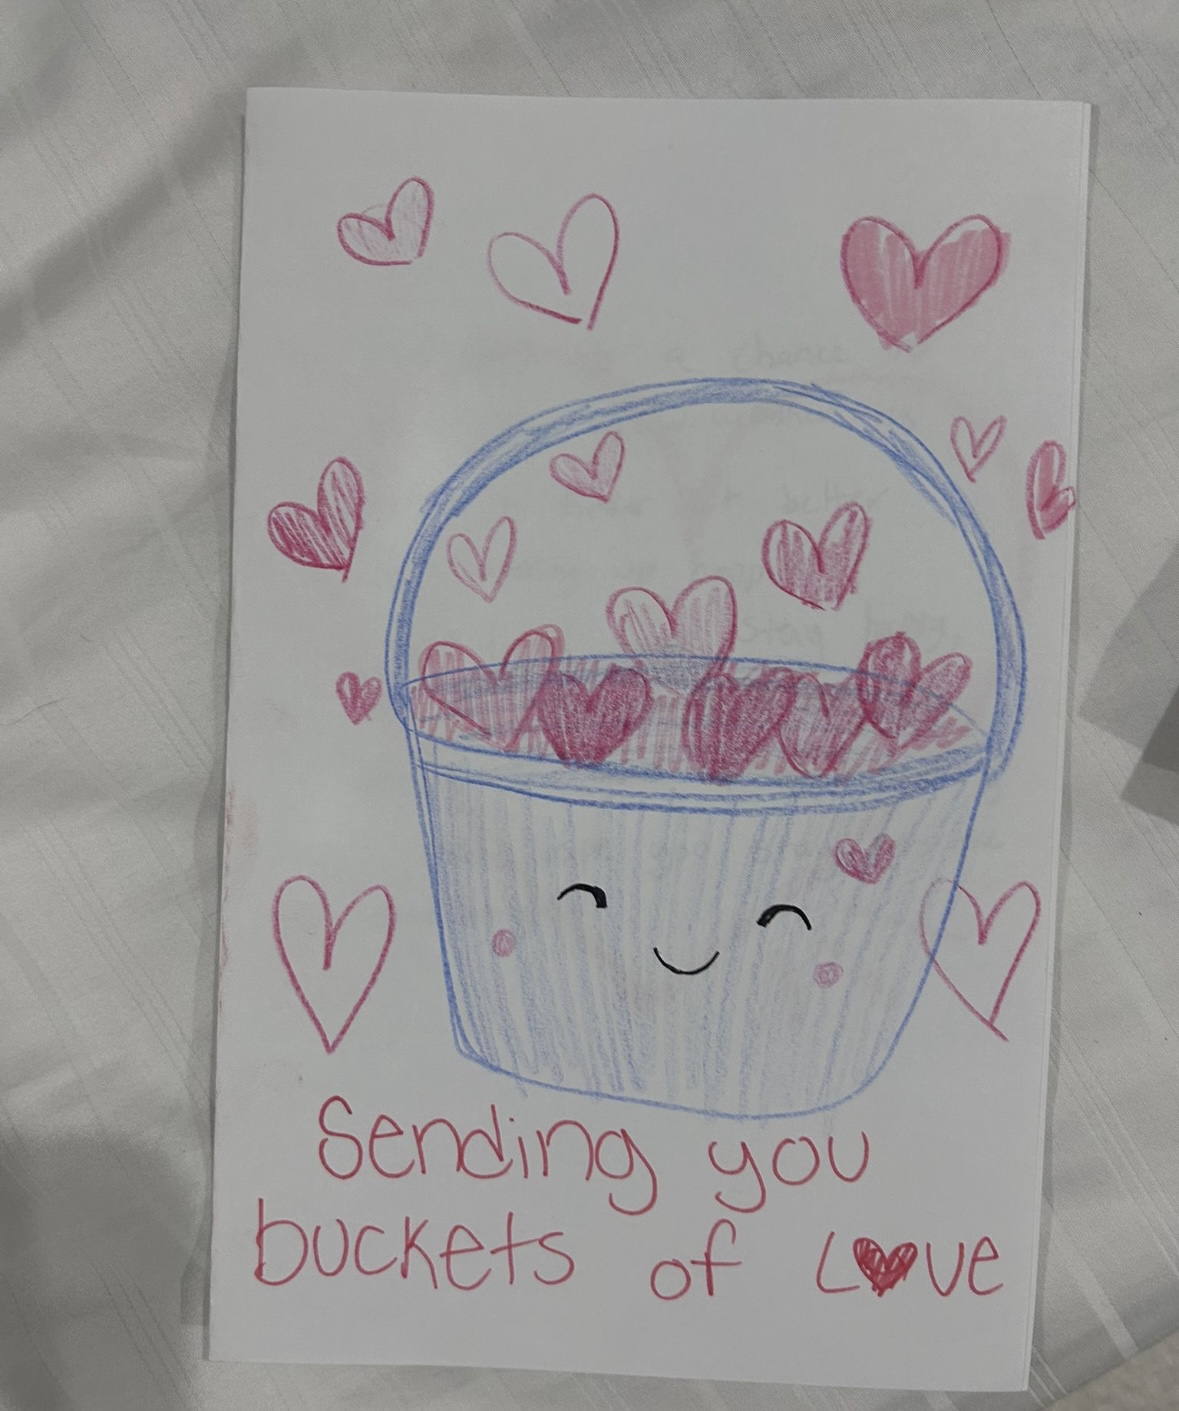 Sending you
buckets of Love